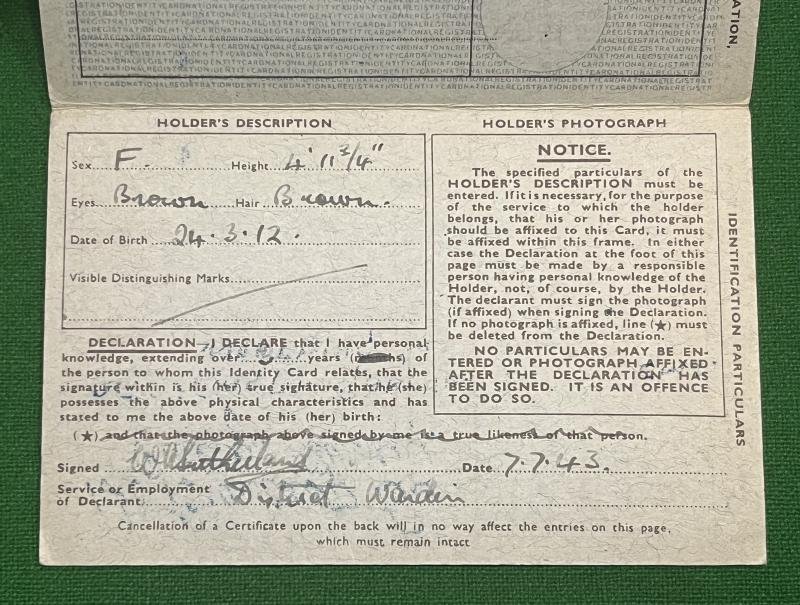 HOLDER'S DESCRIPTION
Sex F. Height 4' 11 3/4"
Eyes Brown Hair Brown.
Date of Birth 24.3.12.
Visible Distinguishing Marks
DECLARATION I DECLARE that I have personal
knowledge, extending over years (months) of
the person to whom this Identity Card relates, that the
signature within is his (her) true signature, that he (she)
possesses the above physical characteristics and has
stated to me the above date of his (her) birth:
(★) and that the photograph above signed by me is a true likeness of that person.
Signed Sutherland Date 7.7.43.
Service or Employment
of Declarant District Warden
Cancellation of a Certificate upon the back will in no way affect the entries on this page,
which must remain intact
HOLDER'S PHOTOGRAPH
NOTICE.
The specified particulars of the
HOLDER'S DESCRIPTION must be
entered. If it is necessary, for the purpose
of the service to which the holder
belongs, that his or her photograph
should be affixed to this Card, it must
be affixed within this frame. In either
case the Declaration at the foot of this
page must be made by a responsible
person having personal knowledge of the
Holder, not, of course, by the Holder.
The declarant must sign the photograph
(if affixed) when signing the Declaration.
If no photograph is affixed, line (★) must
be deleted from the Declaration.
NO PARTICULARS MAY BE EN-
TERED OR PHOTOGRAPH AFFIXED
AFTER THE DECLARATION HAS
BEEN SIGNED. IT IS AN OFFENCE
TO DO SO.
IDENTIFICATION PARTICULARS